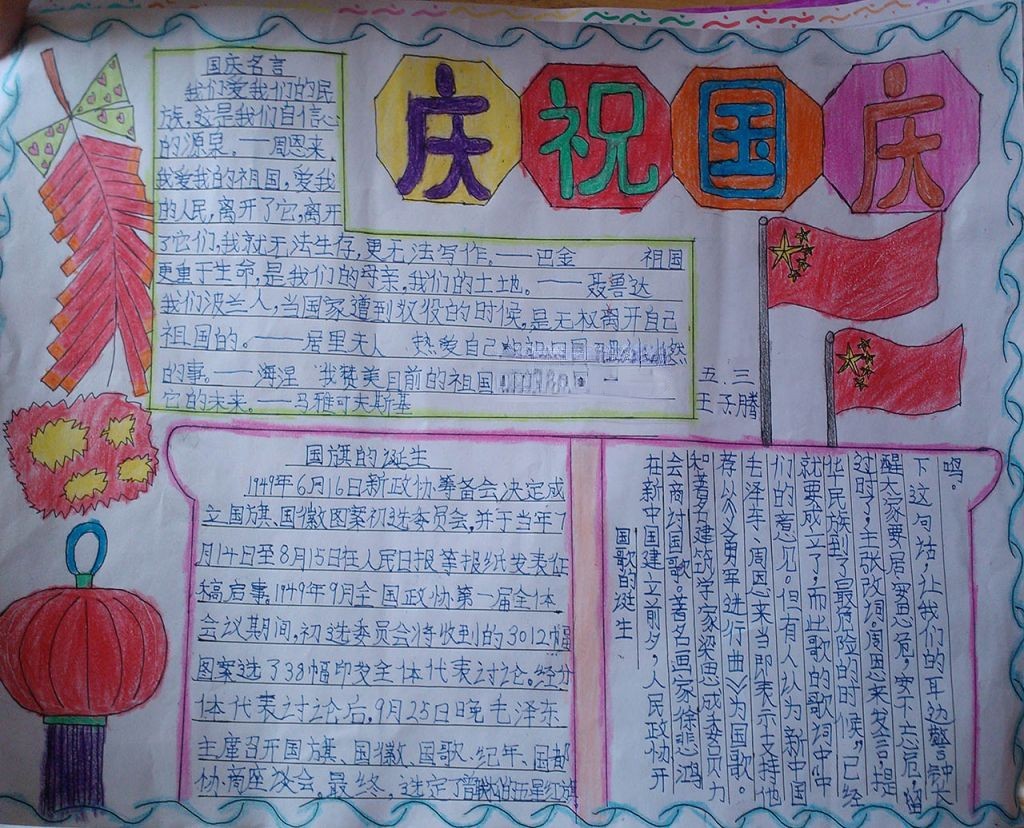 庆祝国庆
国庆名言
我们爱我们的民
族,这是我们自信心
的源泉。——周恩来
我爱我的祖国,爱我
的人民,离开了它,离开
了它们,我就无法生存,更无法写作。——巴金 祖国
更重于生命,是我们的母亲,我们的土地。——聂鲁达
我们波兰人,当国家遭到奴役的时候,是无权离开自己
祖国的。——居里夫人 热爱自己
的事。——海涅 我赞美目前的祖国
它的未来。——马雅可夫斯基
五.三
王子腾
国旗的诞生
1949年6月16日新政协筹备会决定成
立国旗、国徽图案初选委员会,并于当年7
月14日至8月15日在人民日报等报纸发表征
稿启事。1949年9月全国政协第一届全体
会议期间,初选委员会将收到的3012幅
图案选了38幅印发全体代表讨论。经分
体代表讨论后,9月25日晚毛泽东
主席召开国旗、国徽、国歌、纪年、国都
协商座谈会。最终,选定了 的五星红旗
国歌的诞生
在新中国建立前夕,人民政协开
会商讨国歌。著名画家徐悲鸿
和著名建筑学家梁思成委员力
荐以《义勇军进行曲》为国歌。
毛泽东、周恩来当即表示支持他
们的意见。但有人认为新中国
就要成立了,而此歌的歌词中“中
华民族到了最危险的时候”,已经
过时了,主张改词。周恩来发言,提
醒大家要居安思危,安不忘危,留
下这句话,让我们的耳边警钟长
鸣。